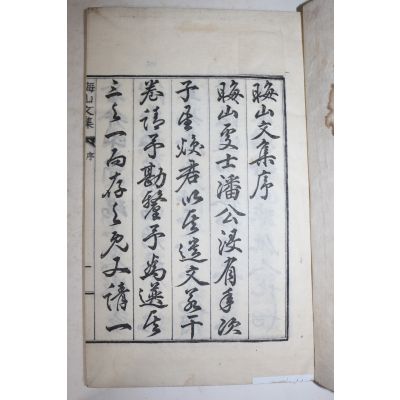 晦山文集序
晦山處士潘公浸有年次
子星煥君以其遺文若干
卷請予勘釐予爲選其
三之一而存之旣又請一
晦山文集 序
一